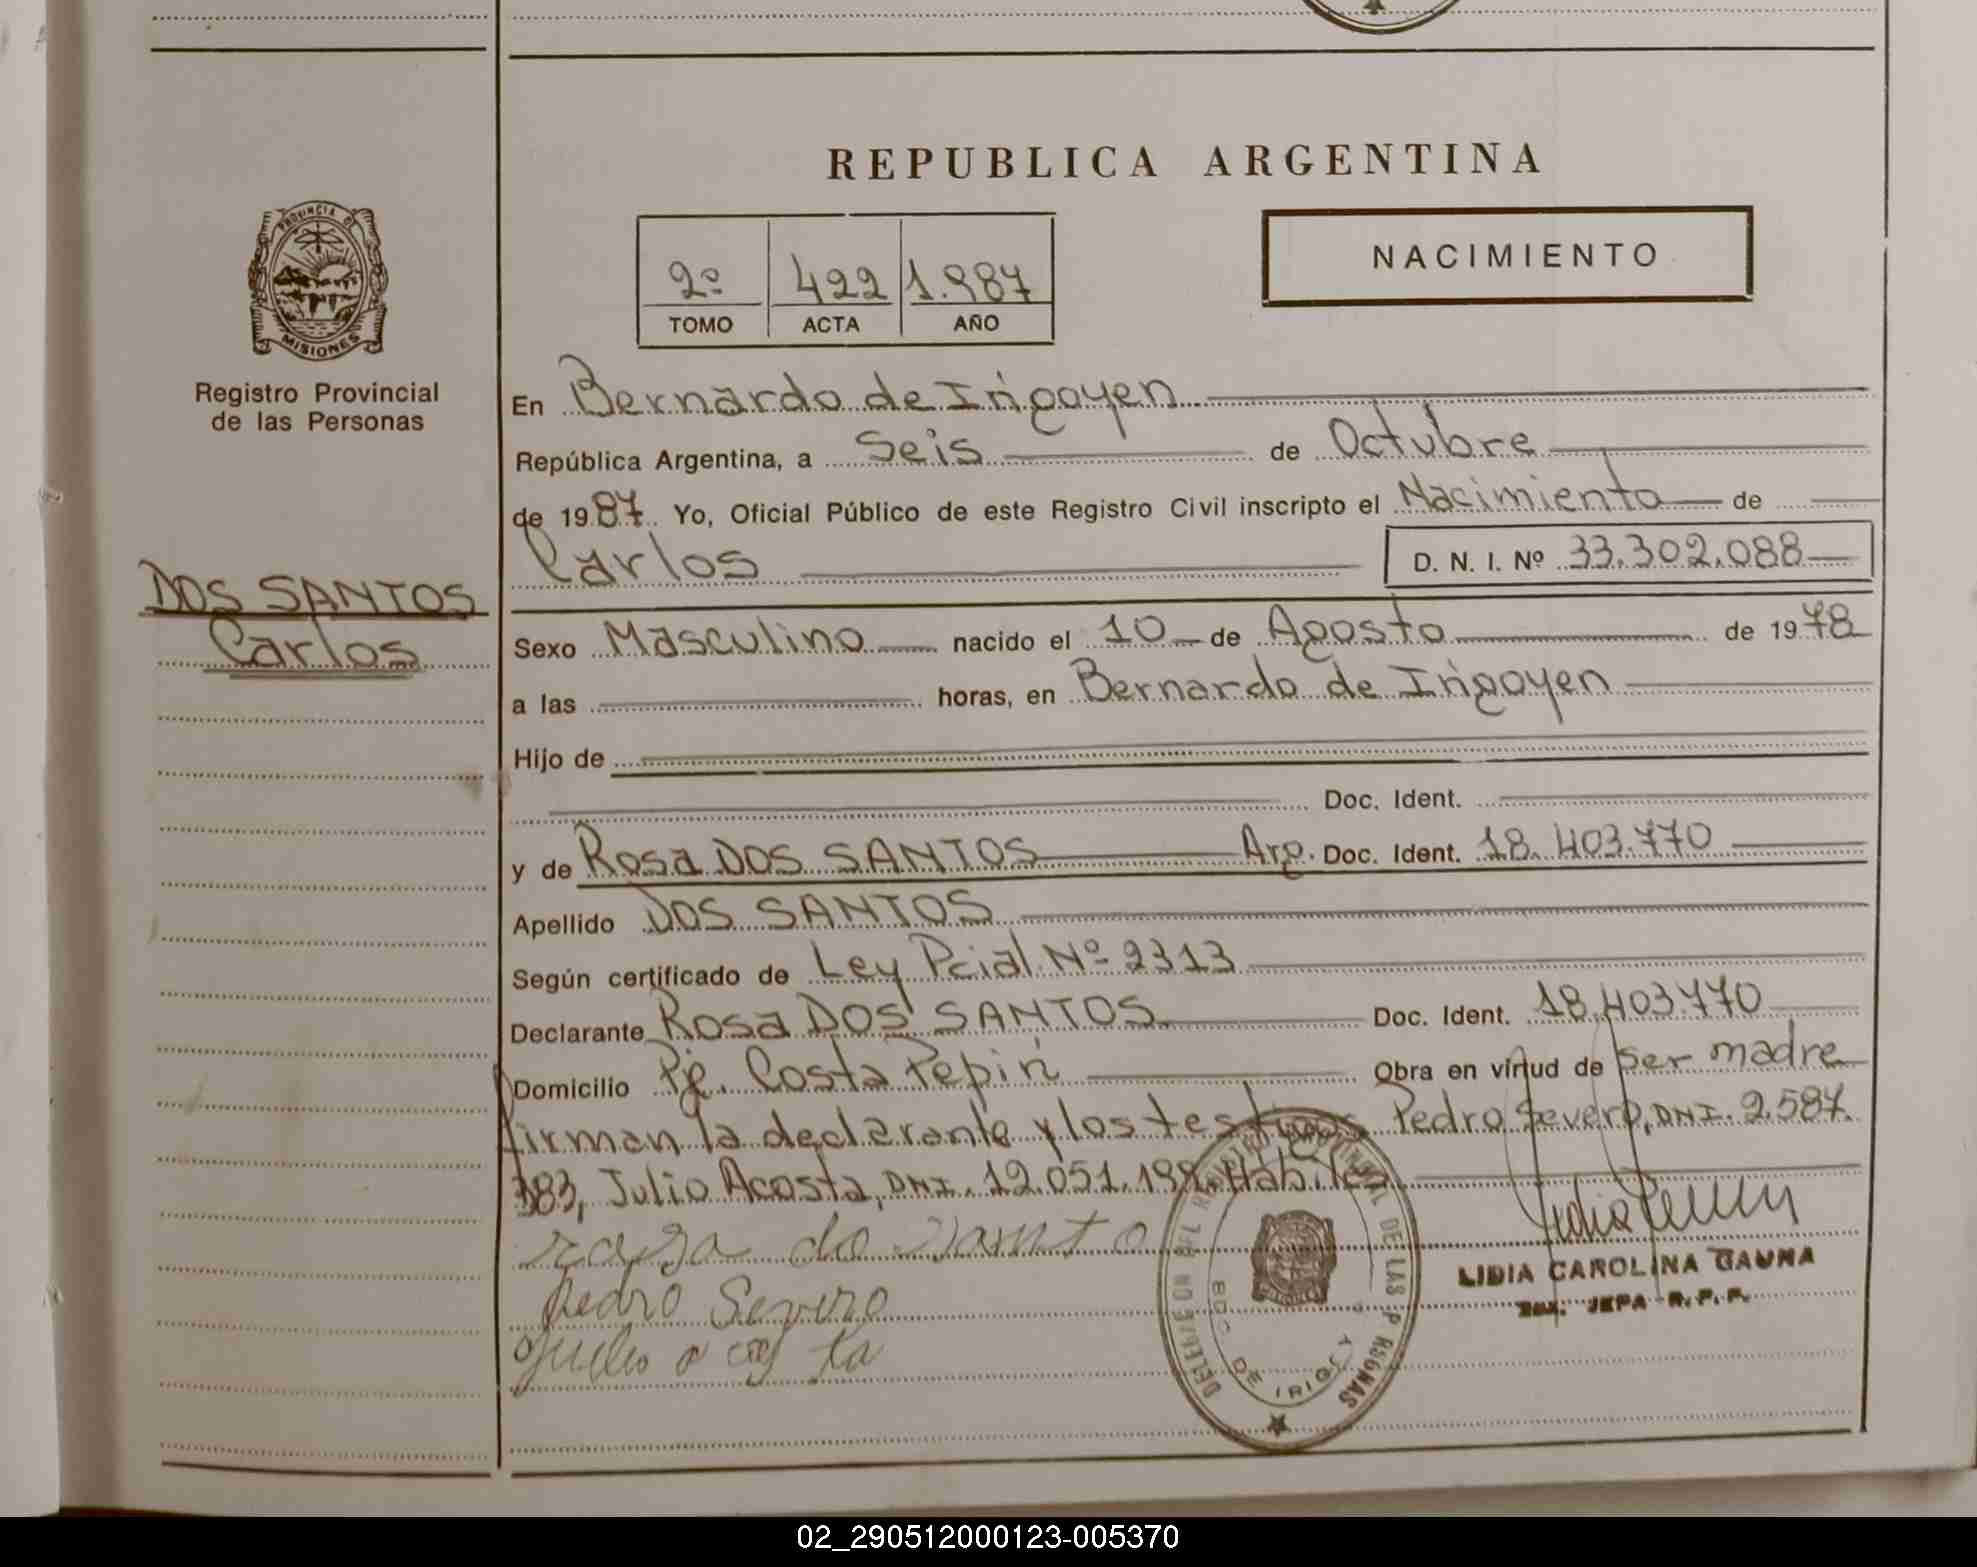 REPUBLICA ARGENTINA
2º 422 1.987
TOMO ACTA AÑO
NACIMIENTO
PROVINCIA DE
MISIONES
Registro Provincial
de las Personas
DOS SANTOS
Carlos
En Bernardo de Irigoyen
República Argentina, a Seis de Octubre
de 1987. Yo, Oficial Público de este Registro Civil inscripto el Nacimiento de
Carlos D. N. I. Nº 33.302.088
Sexo Masculino nacido el 10 de Agosto de 1978
a las horas, en Bernardo de Irigoyen
Hijo de
Doc. Ident.
y de Rosa DOS SANTOS Arg. Doc. Ident. 18.403.770
Apellido DOS SANTOS
Según certificado de Ley Pcial Nº 2313
Declarante Rosa DOS SANTOS Doc. Ident. 18.403.770
Domicilio Pje. Costa Pepirí Obra en virtud de ser madre
firman la declarante y los testigos Pedro Severo, DNI. 2.587.
383, Julio Acosta, DNI. 12.051.199 Hábiles
roza do Santo
Pedro Severo
Julio a cos ta
LIDIA CAROLINA GAUNA
JEFA R. P. P.
DELEGACION DEL REGISTRO PROVINCIAL DE LAS PERSONAS
BDO. DE IRIGOYEN
02_290512000123-005370